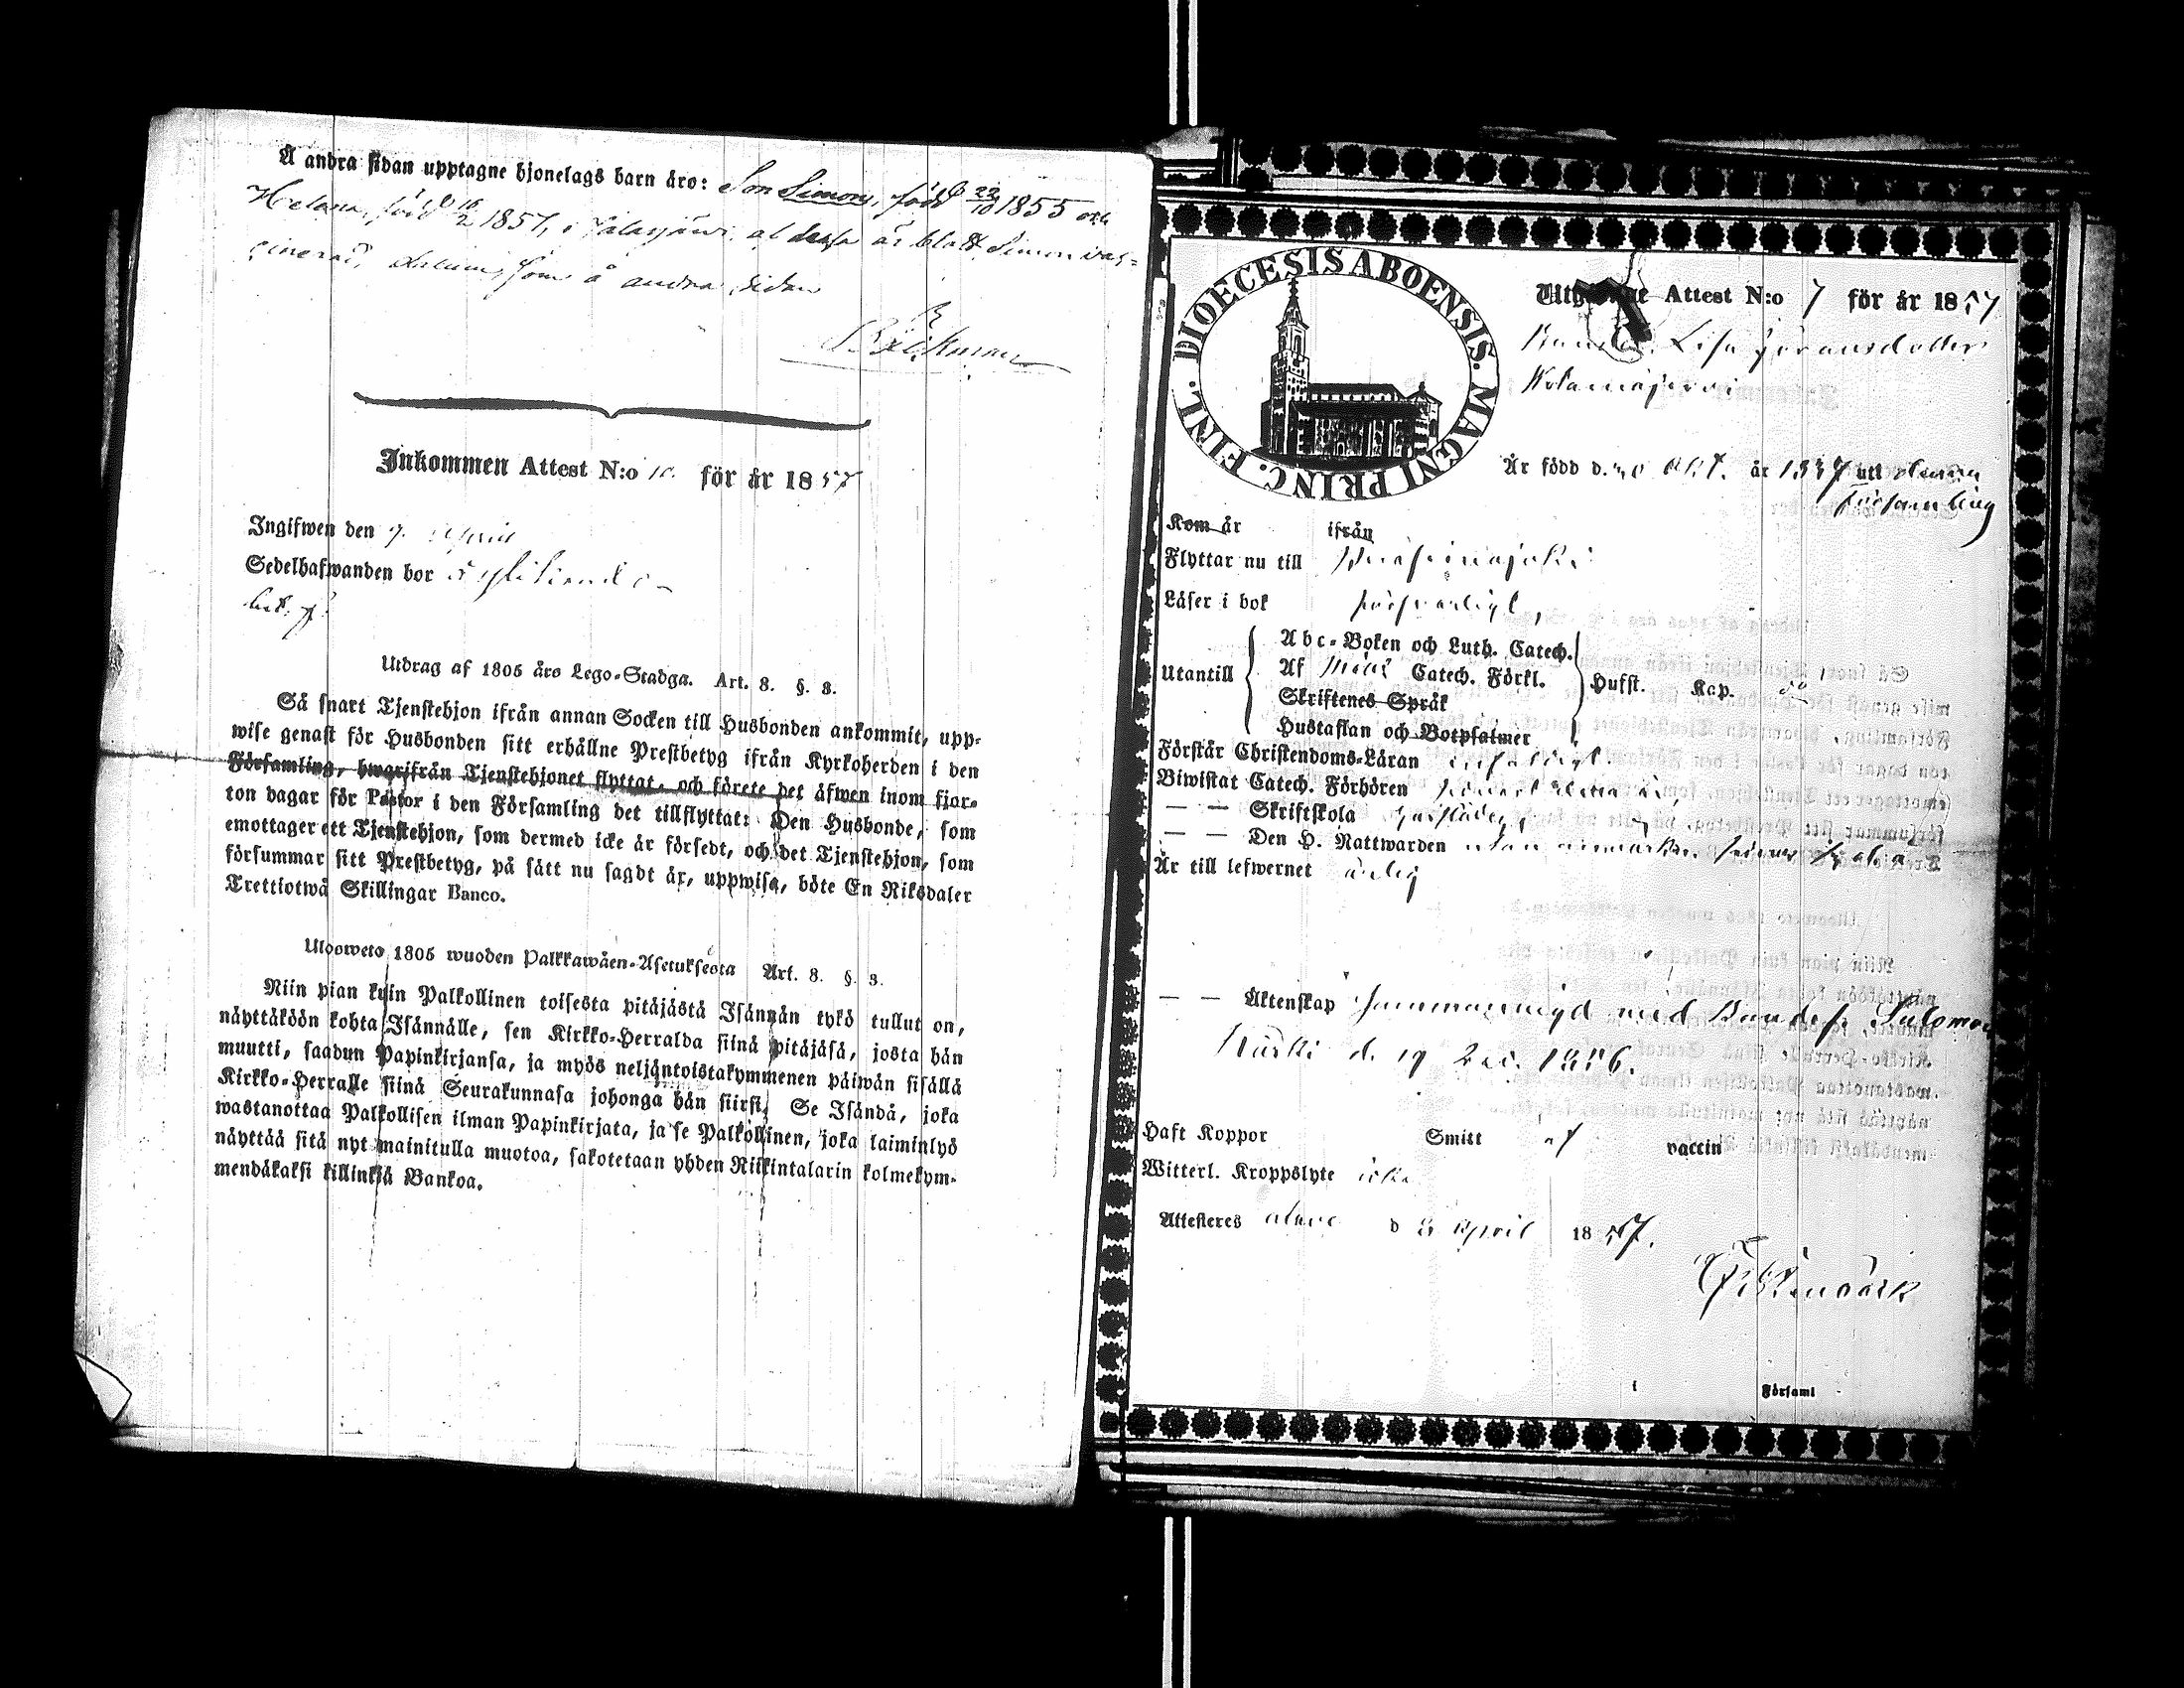 Å andra sidan upptagne hjonelags barn äro: Son Simon, född 22/10 1855 och
Helena, född 16/2 1857, i Jalasjärvi, af dessa är blott Simon vac-
cinerad, Datum som å andra sidan
Bäckman
Inkommen Attest N:o 10. för år 1857
Ingifwen den 7. April
Sedelhafwanden bor
Utdrag af 1805 års Lego-Stadga. Art. 8. §. 3.
Så snart Tjenstehjon ifrån annan Socken till Husbonden ankommit, upp-
wise genast för Husbonden sitt erhållne Prestbetyg ifrån Kyrkoherden i den
Församling, hwarifrån Tjenstehjonet flyttat, och förete det äfwen inom fjor-
ton dagar för Pastor i den Församling det tillflyttat: Den Husbonde, som
emottager ett Tjenstehjon, som dermed icke är försedt, och det Tjenstehjon, som
försummar sitt Prestbetyg, på sätt nu sagdt är, uppwisa, böte En Riksdaler
Trettiotwå Skillingar Banco.
Ulosweto 1805 wuoden Palkkawäen-Asetuksesta Art. 8. §. 3.
Niin pian kuin Palkollinen toisesta pitäjästä Isännän tykö tullut on,
näyttäköön kohta Isännälle, sen Kirkko-Herralda siinä pitäjäsä, josta hän
muutti, saadun Papinkirjansa, ja myös neljäntoistakymmenen päiwän sisällä
Kirkko-Herralle siinä Seurakunnasa johonga hän siirsi. Se Isändä, joka
wastanottaa Palkollisen ilman Papinkirjata, ja se Palkollinen, joka laiminlyö
näyttää sitä nyt mainitulla muotoa, sakotetaan yhden Riikintalarin kolmekym-
mendäkaksi killinkiä Bankoa.
DIOECESIS ABOENSIS. MAGNI PRINC. FINL.
Attest N:o 7 för år 1857
Lisa Göransdotter
Är född d. 20 Okt. år 1837 uti
Församling
Kom år ifrån
Flyttar nu till
Läser i bok försvarligt,
Utantill
Abc-Boken och Luth. Catech.
Af Catech. Förkl.
Skriftenes Språk
Hustaflan och Botpsalmer
Hufst. Kap.
Förstår Christendoms-Läran
Biwistat Catech. Förhören
— — Skriftskola
— — Den H. Nattwarden
Är till lefwernet ärlig
— — Äktenskap Sammanvigd med Salomon
d. 19 Dec. 1856.
Haft Koppor Smitt af vaccin
Witterl. Kroppslyte icke
Attesteres Alavo d 3 April 1857.
i Församl